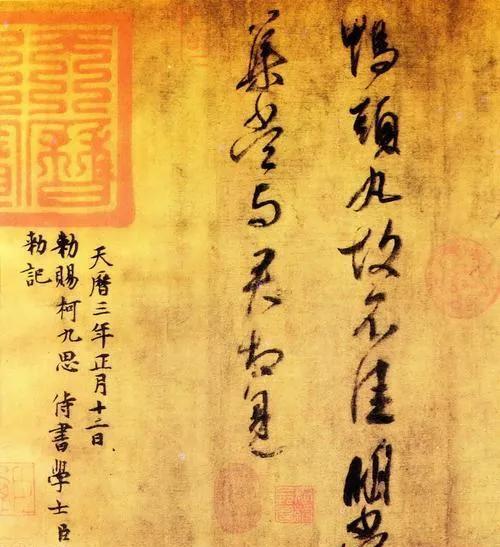 鴨頭丸故不佳明當
集當与君相見
天曆三年正月十二日
勑賜柯九思 侍書學士臣
勑記